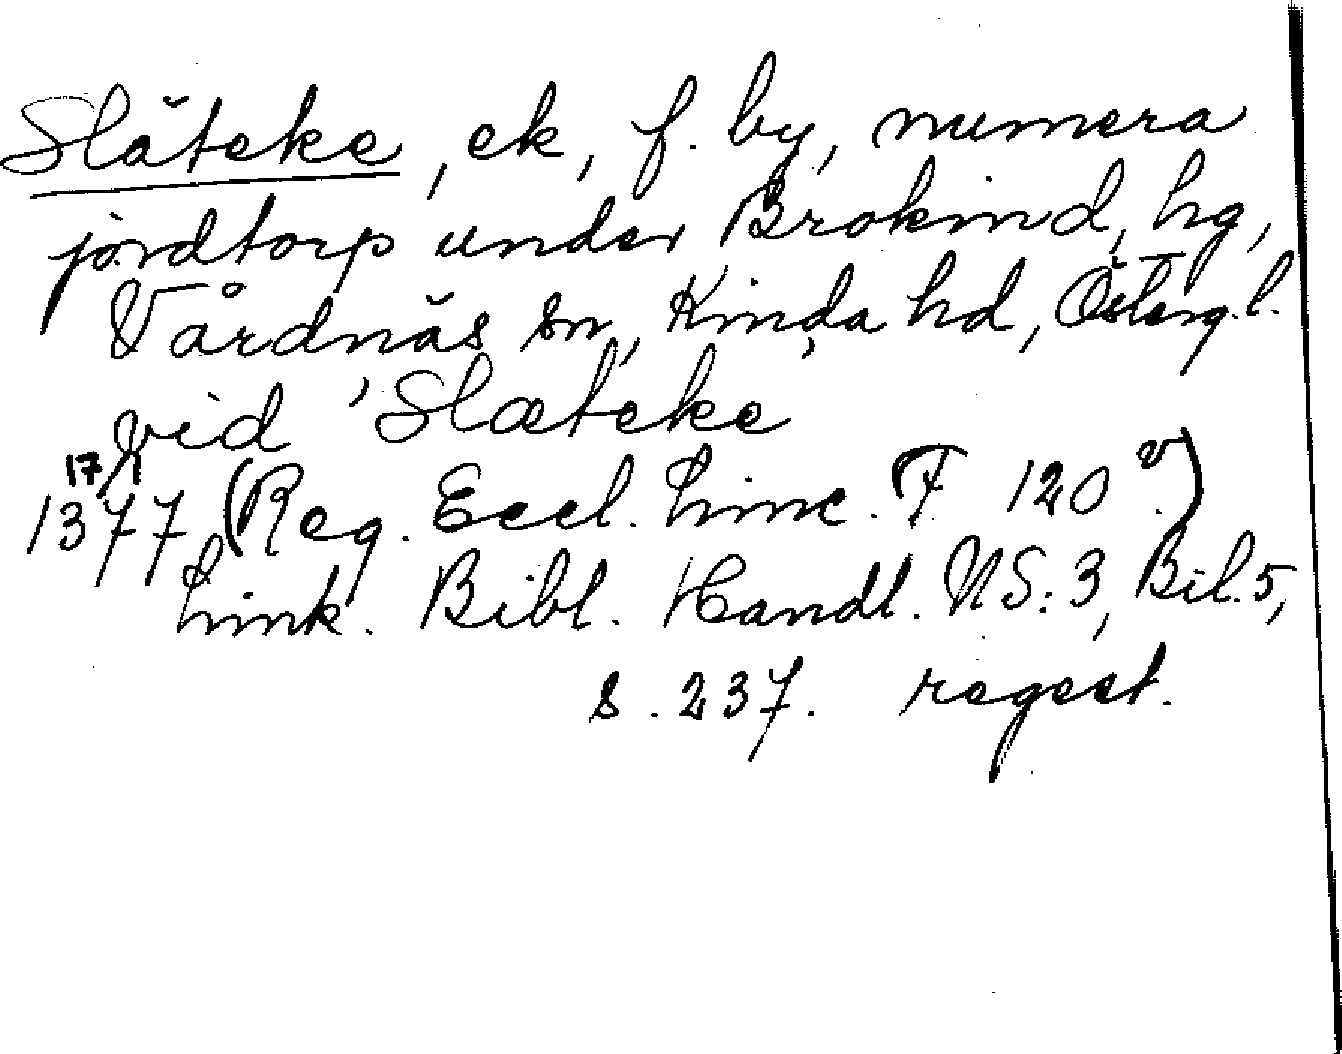 Släteke, ek, f. by, numera
jordtorp under Brokind, hg,
Vårdnäs sn, Kinda hd, Östergl.
vid Slæteke
17/1
1377 (Reg. Eccl. Linc. F 120 v.)
Link. Bibl. Handl. NS: 3, Bil. 5,
s. 237. regest.